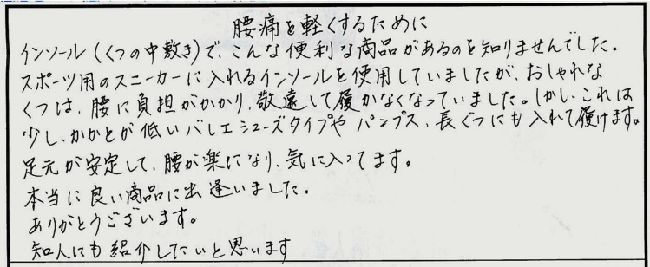 腰痛を軽くするために
インソール(くつの中敷き)で、こんな便利な商品があるのを知りませんでした。
スポーツ用のスニーカーに入れるインソールを使用していましたが、おしゃれな
くつは、腰に負担がかかり、敬遠して履かなくなっていました。しかし、これは
少し、かかとが低いバレエシューズタイプや パンプス、長ぐつにも入れて履けます。
足元が安定して、腰が楽になり、気に入ってます。
本当に良い商品に出逢いました。
ありがとうございます。
知人にも紹介したいと思います